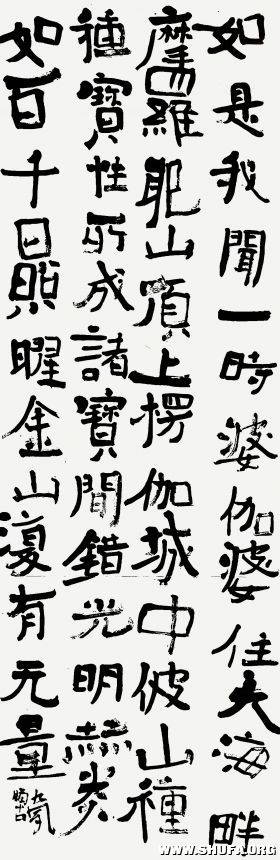 如是我聞一時婆伽婆住大海畔
摩羅耶山頂上楞伽城中彼山種
種寶性所成諸寶間錯光明赫炎
如百千日照曜金山復有无量
WWW.SHUFA.ORG